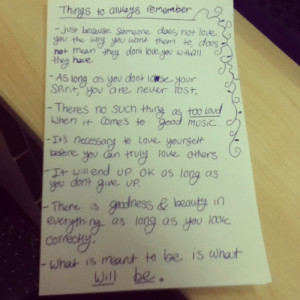 Things to always remember
- Just because someone does not love
you the way you want them to does
not mean they dont love you with all
they have.
- As long as you dont lose your
spirit, you are never lost.
- Theres no such thing as too loud
when it comes to good music.
- It's necessary to love yourself
before you can truly love others
- It will end up OK as long as
you don't give up.
- There is goodness & beauty in
everything as long as you look
correctly.
- What is meant to be is what
will be.